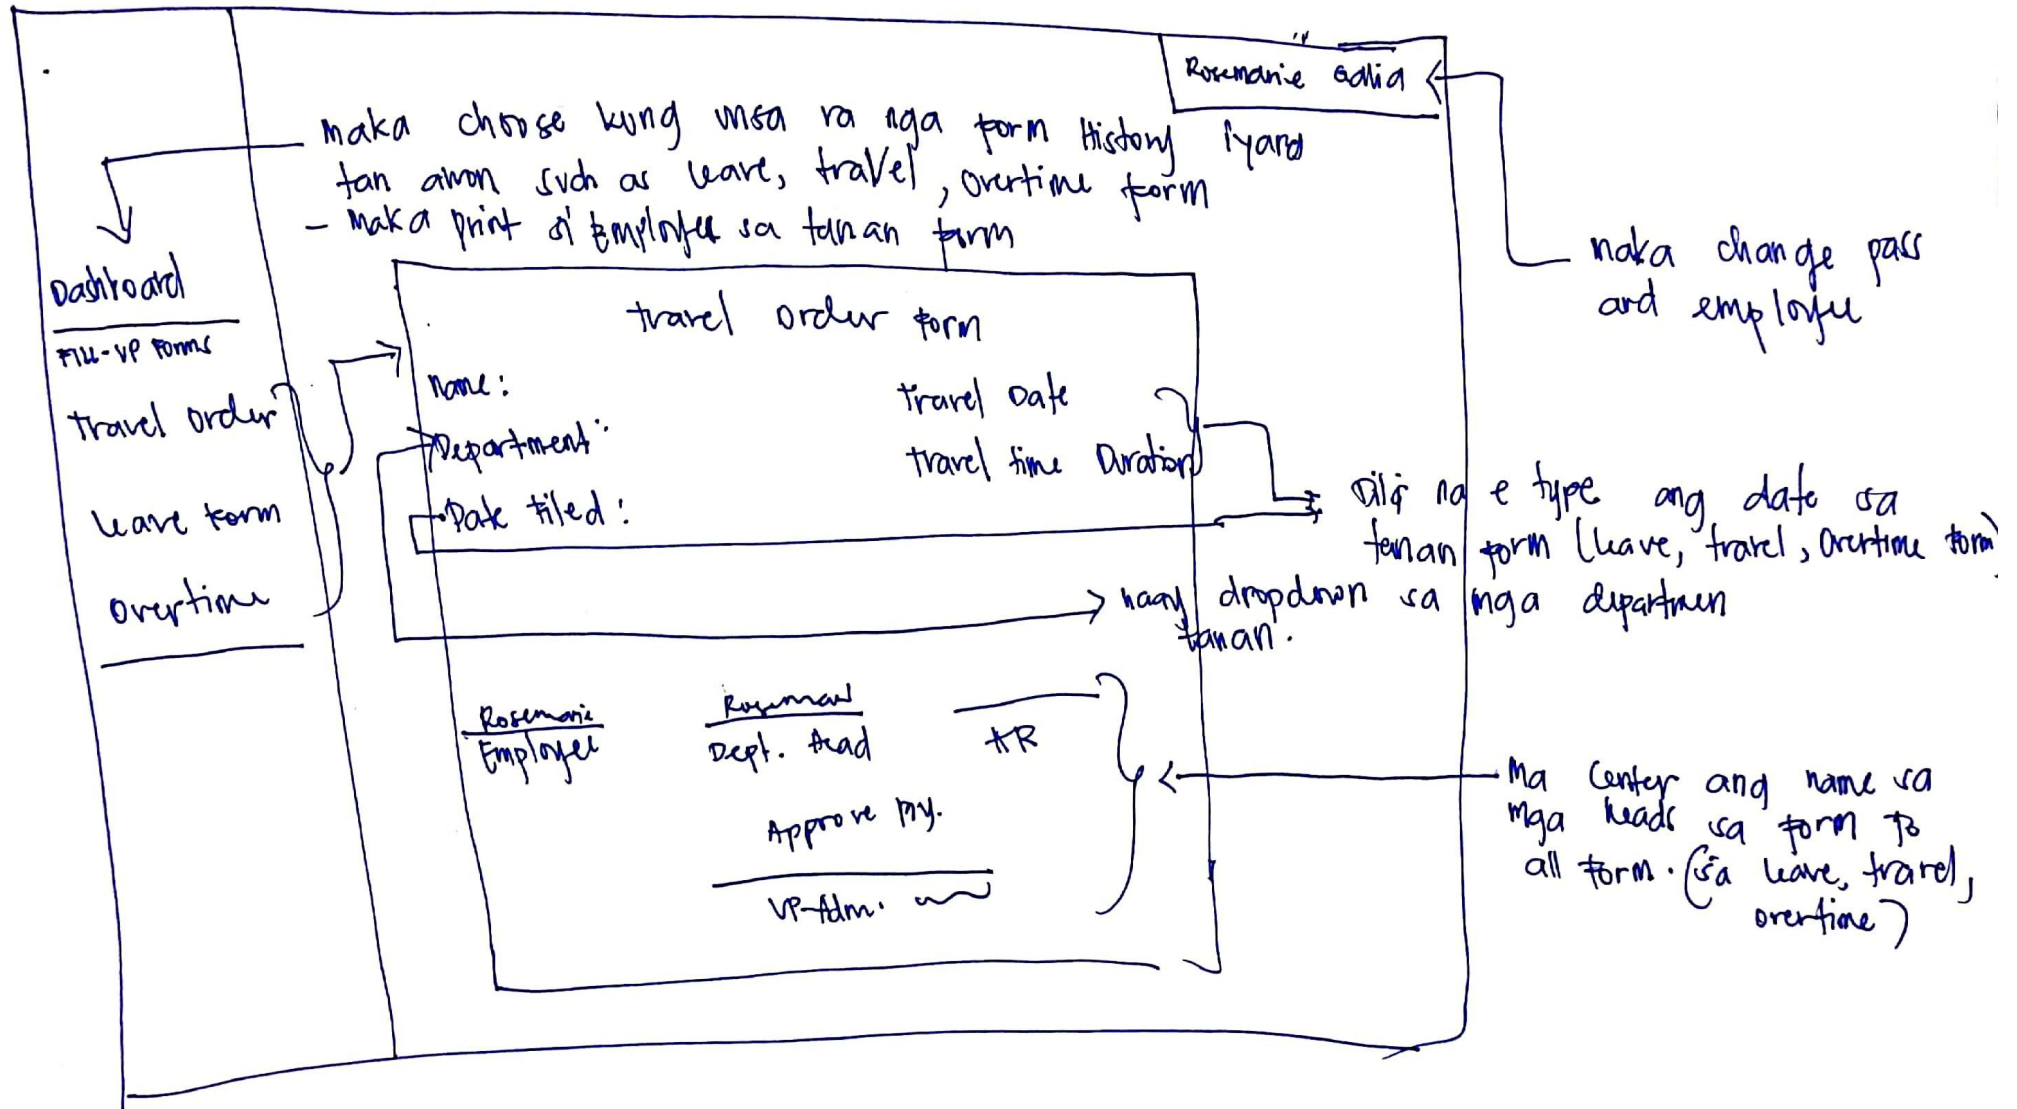 Rosemarie Galia
maka choose kung unsa ra nga form History iyang
tan awon such as leave, travel, overtime form
- maka print si Employee sa tanan form
naka change pass
ang employee
Dashboard
FILL-UP Forms
travel order
leave form
overtime
travel order form
Name:
travel Date
Department:
travel time Duration
Date filed:
Dili na e type ang date sa
tanan form (leave, travel, overtime form)
naay dropdown sa mga departmen
tanan.
Rosemarie
Employee
Dept. Head
HR
Approve by.
VP-Adm.
Ma center ang name sa
mga heads sa form to
all form. (sa leave, travel,
overtime)